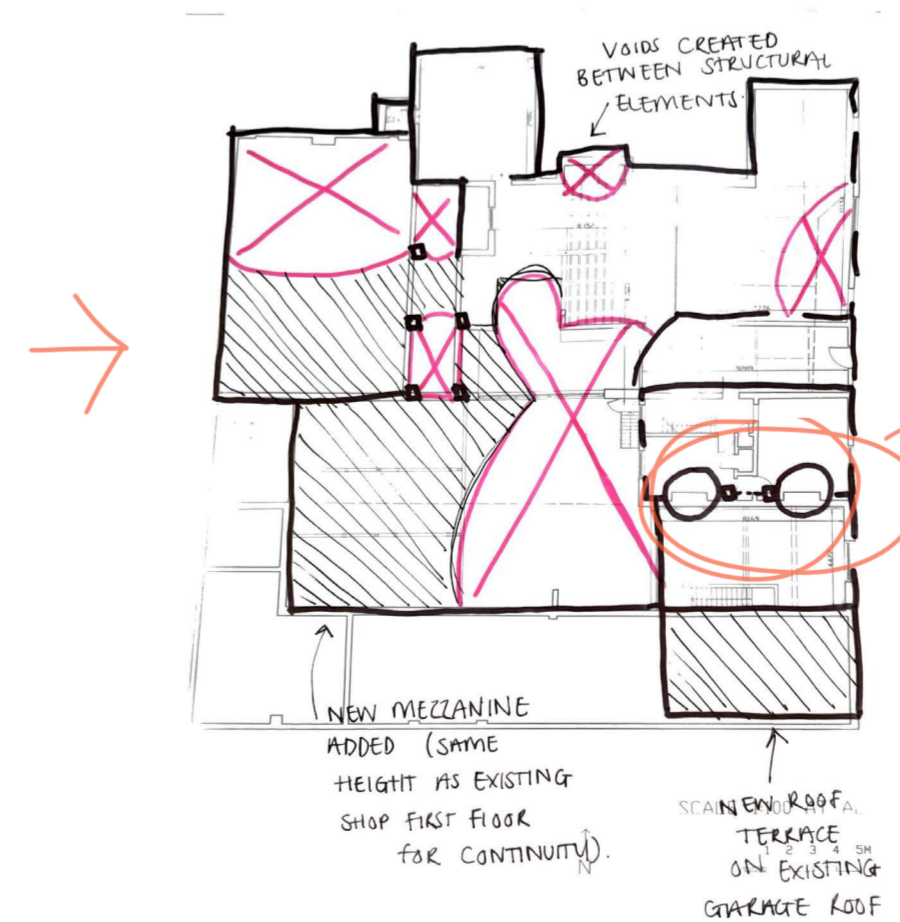 VOIDS CREATED
BETWEEN STRUCTURAL
ELEMENTS.
NEW MEZZANINE
ADDED (SAME
HEIGHT AS EXISTING
SHOP FIRST FLOOR
FOR CONTINUITY).
N
NEW ROOF
TERRACE
1 2 3 4 5M
ON EXISTING
GARAGE ROOF